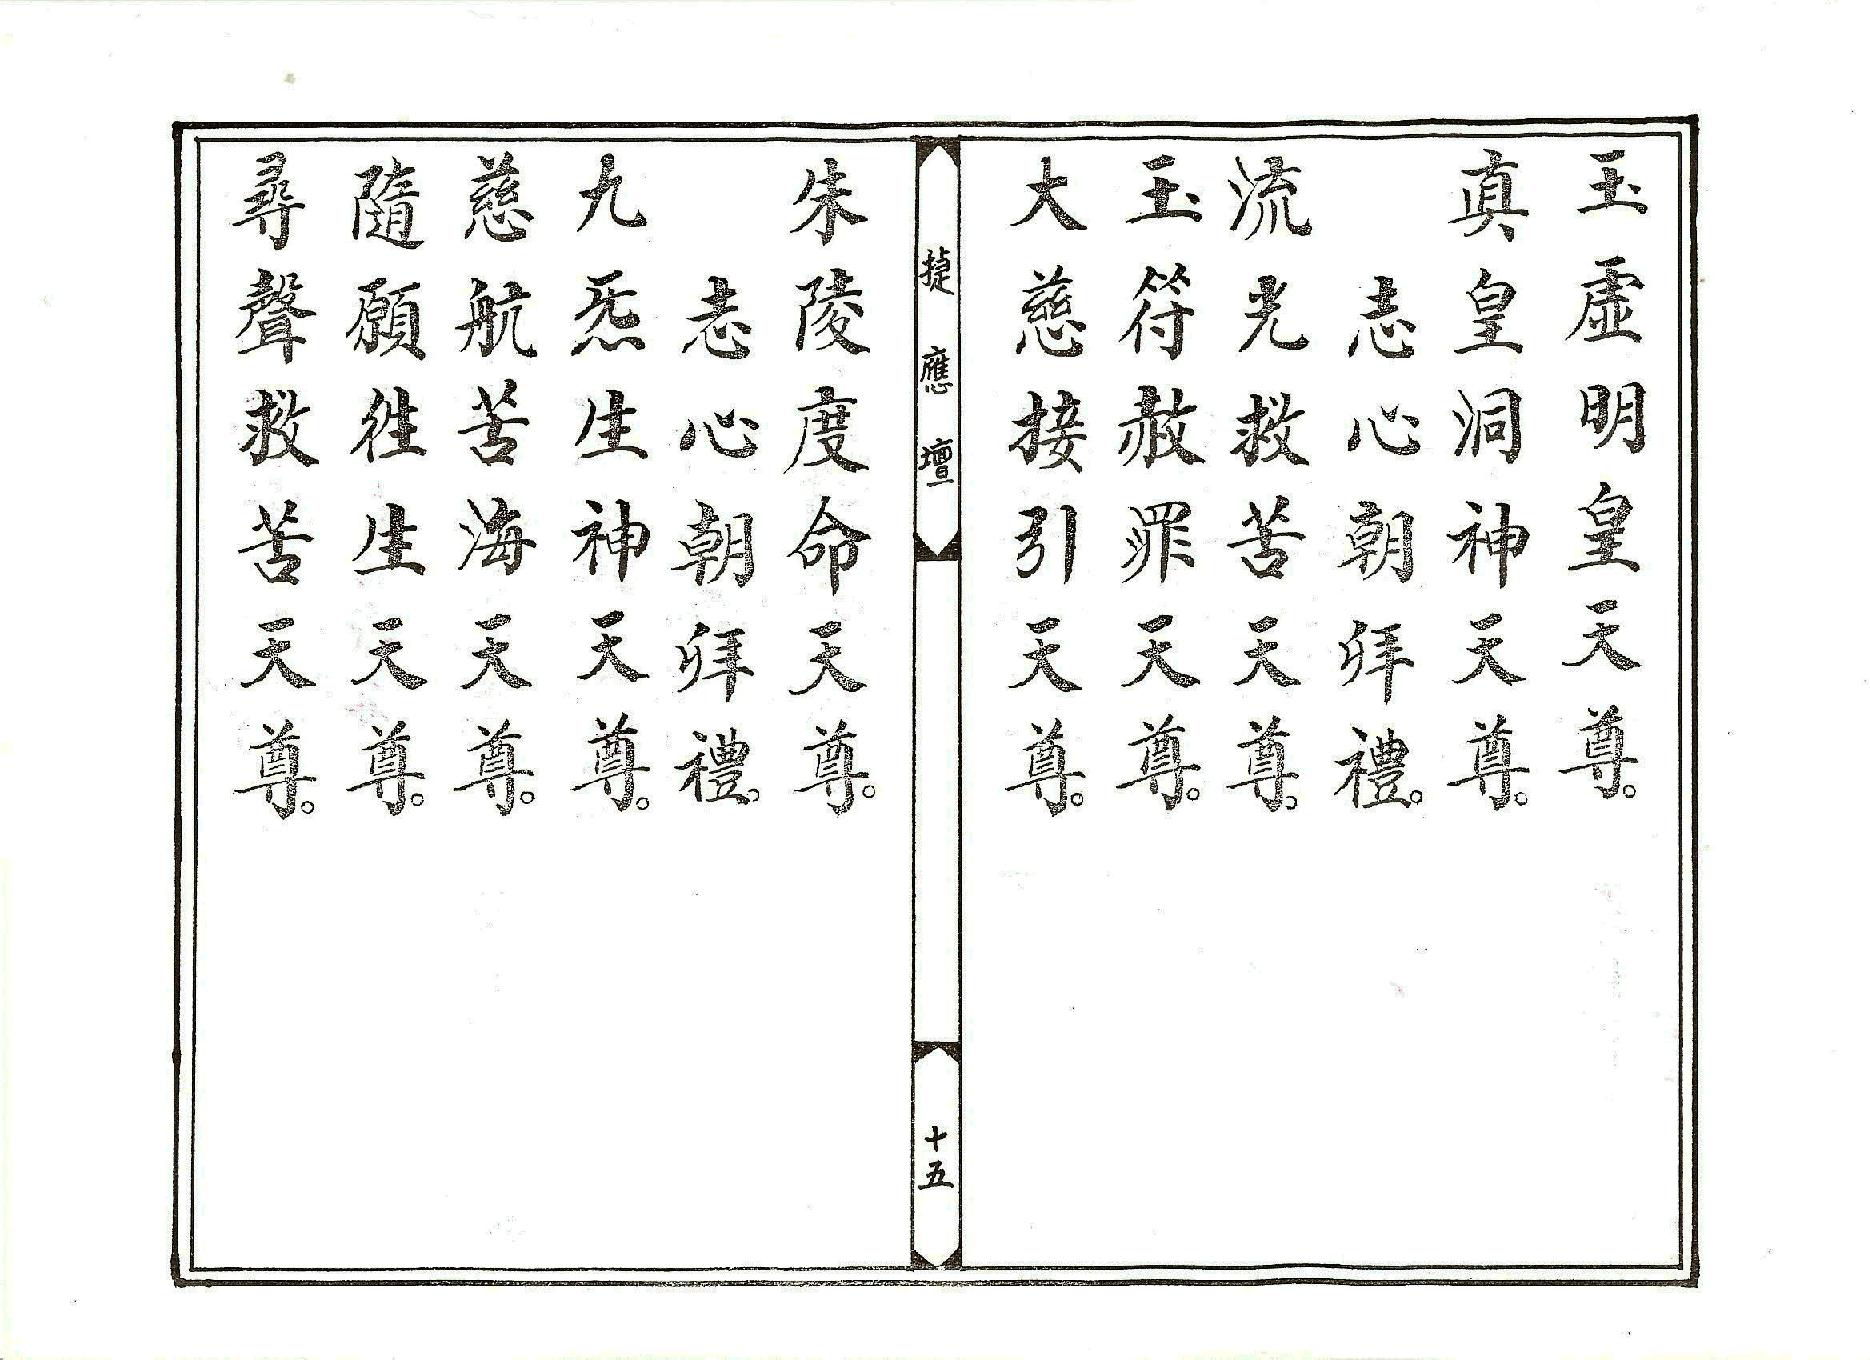 玉虛明皇天尊。
真皇洞神天尊。
志心朝拜禮。
流光救苦天尊。
玉符赦罪天尊。
大慈接引天尊。
捷應壇
十五
朱陵度命天尊。
志心朝拜禮。
九炁生神天尊。
慈航苦海天尊。
隨願往生天尊。
尋聲救苦天尊。